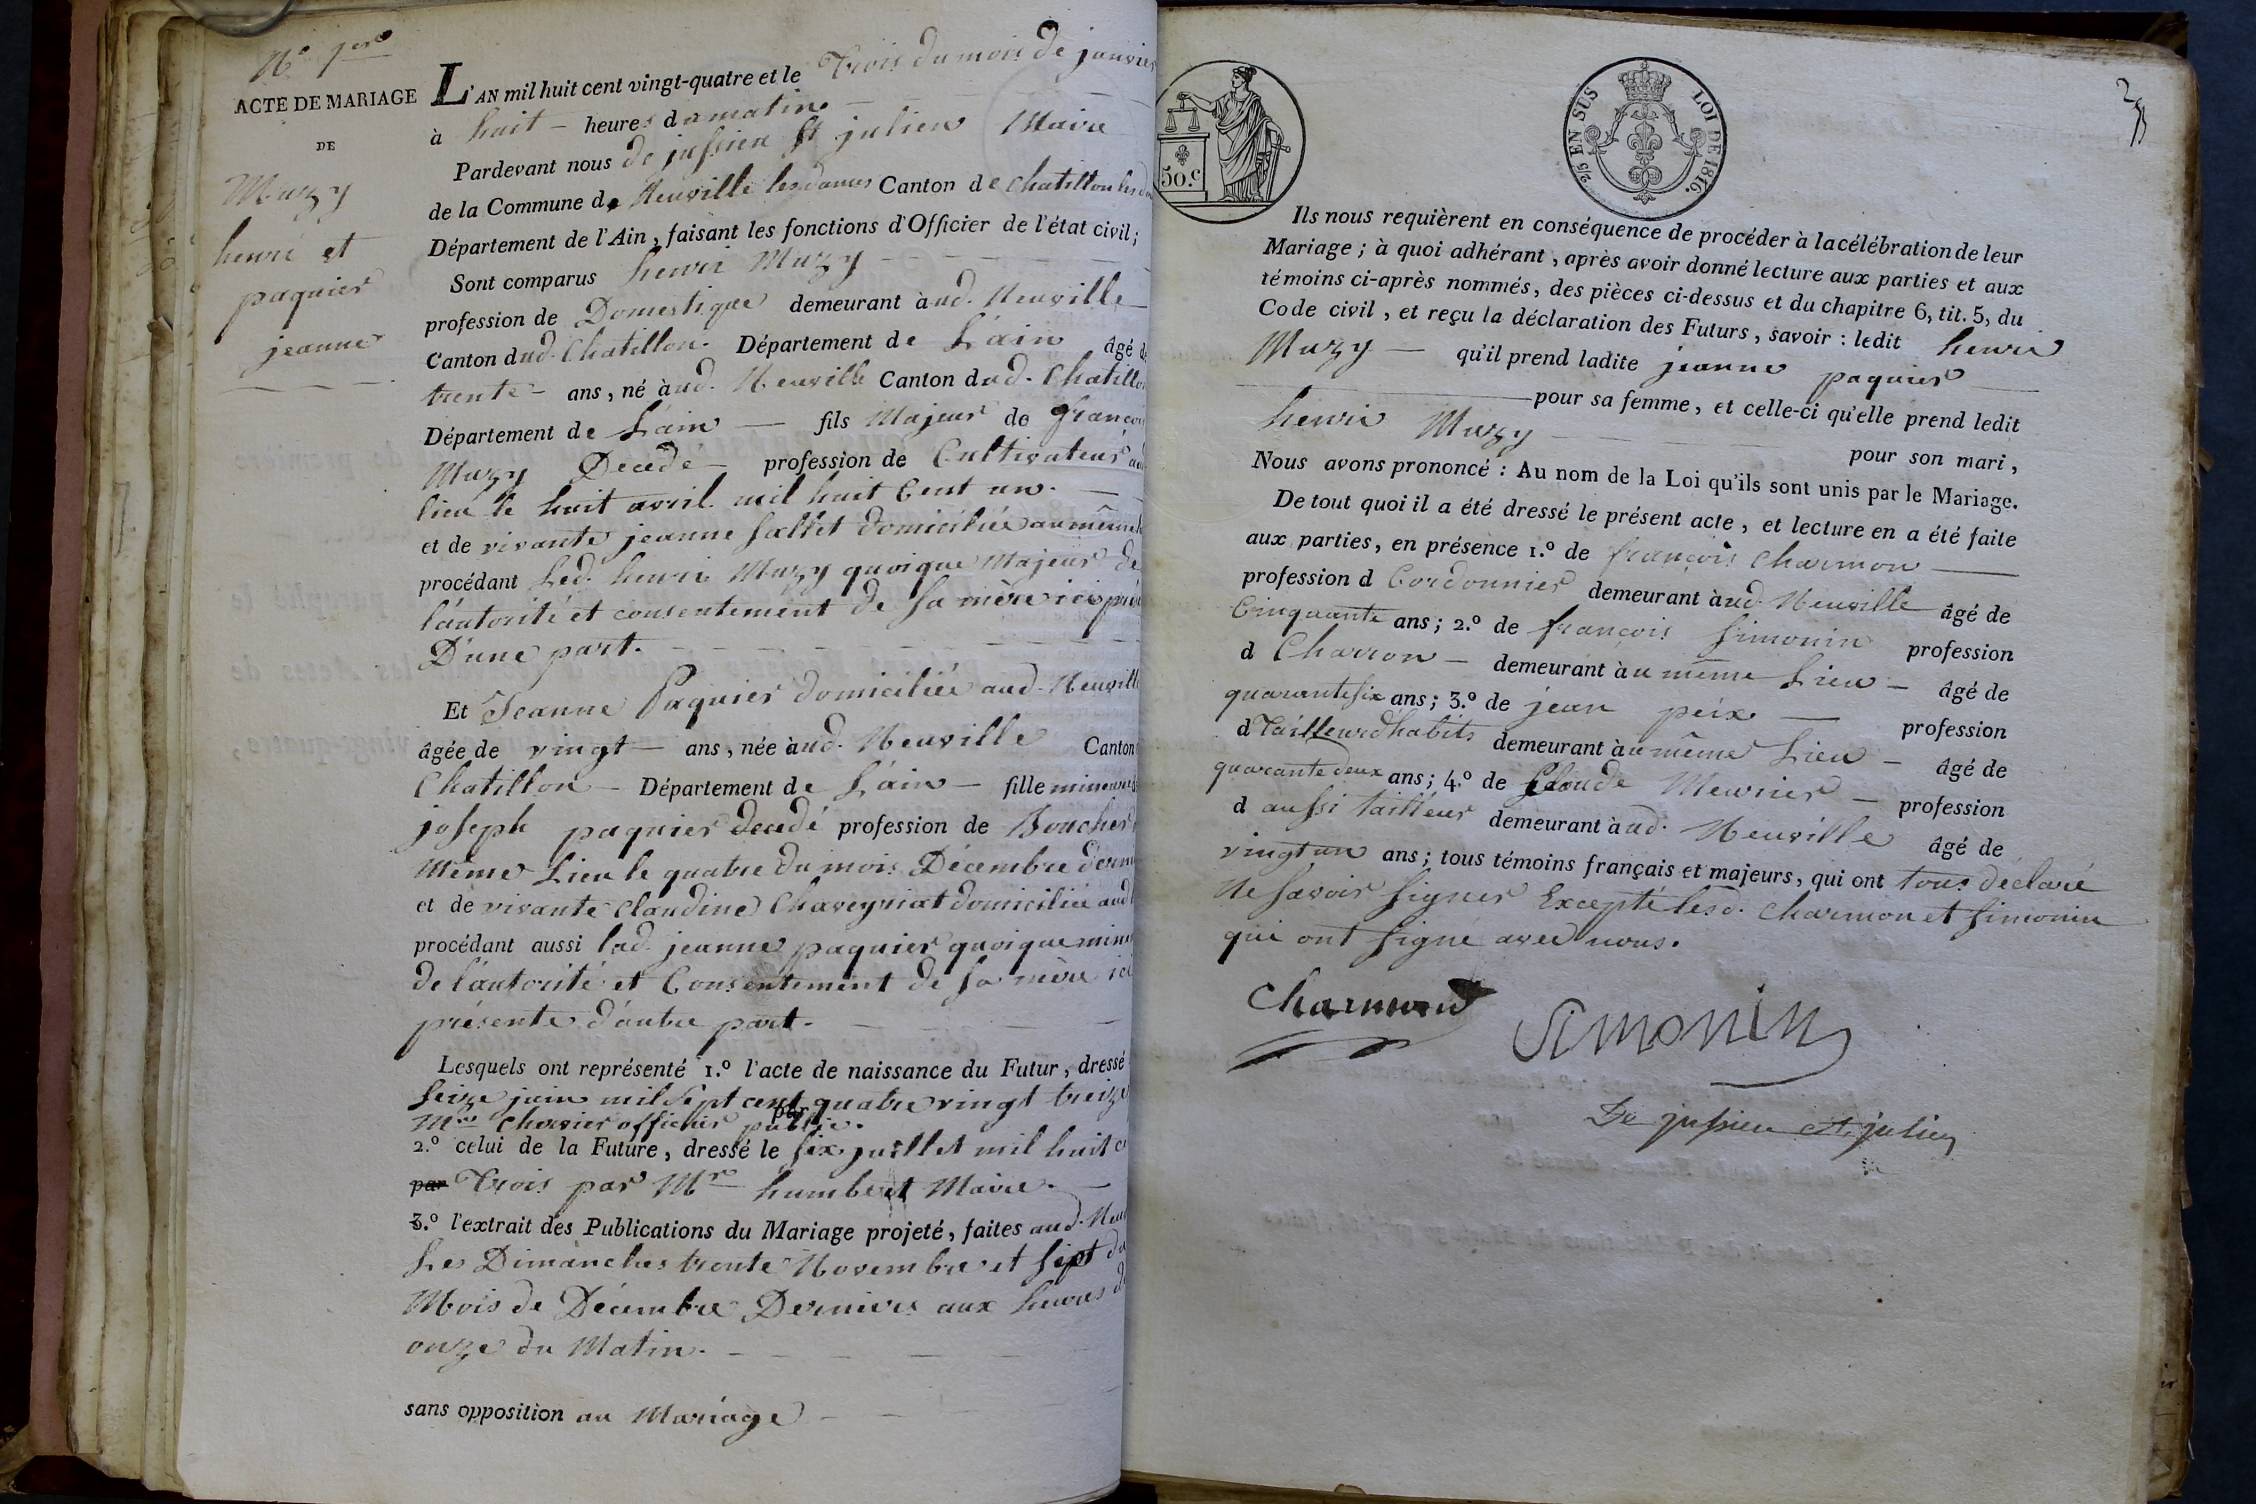 N.º 1er
ACTE DE MARIAGE
DE
Muzy
henri et
paquier
jeanne
L'AN mil huit cent vingt-quatre et le Trois du mois de janvier
à huit heures du matin.
Pardevant nous de jussieu St julien Maire
de la Commune de Neuville lesdames Canton de Chatillon les
Département de l'Ain, faisant les fonctions d'Officier de l'état civil;
Sont comparus henri Muzy
profession de Domestique demeurant aud. Neuville
Canton dud. Chatillon. Département de L'ain âgé de
trente ans, né aud. Neuville Canton dud. Chatillon
Département de L'ain fils Majeur de françois
Muzy Décédé profession de Cultivateur
lieu le huit avril mil huit Cent un.
et de vivante jeanne Sallet domiciliée au même
procédant Led. henri Muzy quoique Majeur de
l'autorité et consentement de Sa mère ici
D'une part.
Et Jeanne Paquier domiciliée aud. Neuville
âgée de vingt ans, née aud. Neuville Canton
Chatillon Département de L'ain fille mineure
joseph paquier decedé profession de Boucher
même Lieu le quatre du mois Décembre
et de vivante claudine Chaveyriat domiciliée
procédant aussi lad. jeanne paquier quoique
de l'autorité et Consentement de Sa mère ici
présente d'autre part.
Lesquels ont représenté 1.º l'acte de naissance du Futur, dressé
Seize juin mil Sept cent quatre vingt treize
par
Mr. officier public.
2.º celui de la Future, dressé le Six juillet mil huit
par Trois par Mr humbert Maire.
3.º l'extrait des Publications du Mariage projeté, faites aud.
Les Dimanches trente Novembre et Sept du
Mois de Décembre Derniers aux heures
onze du Matin.
sans opposition au Mariage
50.c
2/5 EN SUS LOI DE 1816.
Ils nous requièrent en conséquence de procéder à la célébration de leur
Mariage; à quoi adhérant, après avoir donné lecture aux parties et aux
témoins ci-après nommés, des pièces ci-dessus et du chapitre 6, tit. 5, du
Code civil, et reçu la déclaration des Futurs, savoir: ledit henri
Muzy qu'il prend ladite jeanne paquier
pour sa femme, et celle-ci qu'elle prend ledit
henri Muzy pour son mari,
Nous avons prononcé: Au nom de la Loi qu'ils sont unis par le Mariage.
De tout quoi il a été dressé le présent acte, et lecture en a été faite
aux parties, en présence 1.º de françois Charmon
profession d Cordonnier demeurant aud. Neuville âgé de
Cinquante ans; 2.º de françois Simonin profession
d Charron demeurant au même Lieu âgé de
quarante six ans; 3.º de jean peix profession
d Tailleur d'habits demeurant au même Lieu âgé de
quarante deux ans; 4.º de Claude Meunier profession
d aussi tailleur demeurant aud. Neuville âgé de
vingt un ans; tous témoins français et majeurs, qui ont tous déclaré
ne Savoir Signer Excepté lesd. Charmon et Simonin
qui ont Signé avec nous.
Charmond
Simonin
De jussieu St. julien